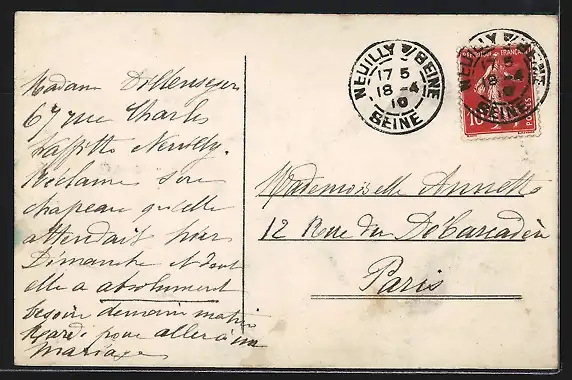 Madame Dollensegers
67 rue Charles
Laffitte Neuilly.
Réclame son
chapeau qu'elle
attendait hier
Dimanche et dont
elle a absolument
besoin demain matin
Mardi pour aller à un
mariage
NEUILLY S/SEINE
17 5
18 -4
10
SEINE
10
POSTES
NEUILLY S/SEINE
5
18 -4
SEINE
Mademoiselle Annette
12 Rue du Débarcadère
Paris